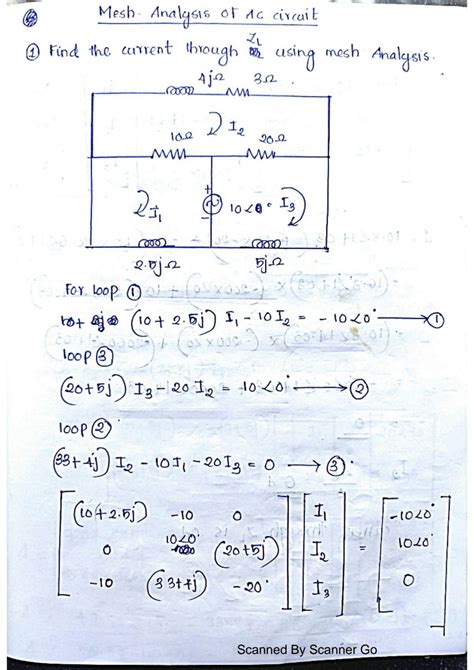 Mesh- Analysis of AC circuit
① Find the current through I₁ using mesh Analysis.
4jΩ 3Ω
10Ω I₂ 20Ω
I₁ + - 10∠0° I₃
2.5jΩ 5jΩ
For loop ①
(10 + 2.5j) I₁ - 10I₂ = - 10∠0° → ①
loop ③
(20+5j) I₃ - 20 I₂ = 10∠0° → ②
loop ②
(33+4j) I₂ - 10I₁ - 20I₃ = 0 → ③
(10+2.5j) -10 0 I₁ -10∠0°
0 10∠0° (20+5j) I₂ = 10∠0°
-10 (33+4j) -20° I₃ 0
Scanned By Scanner Go